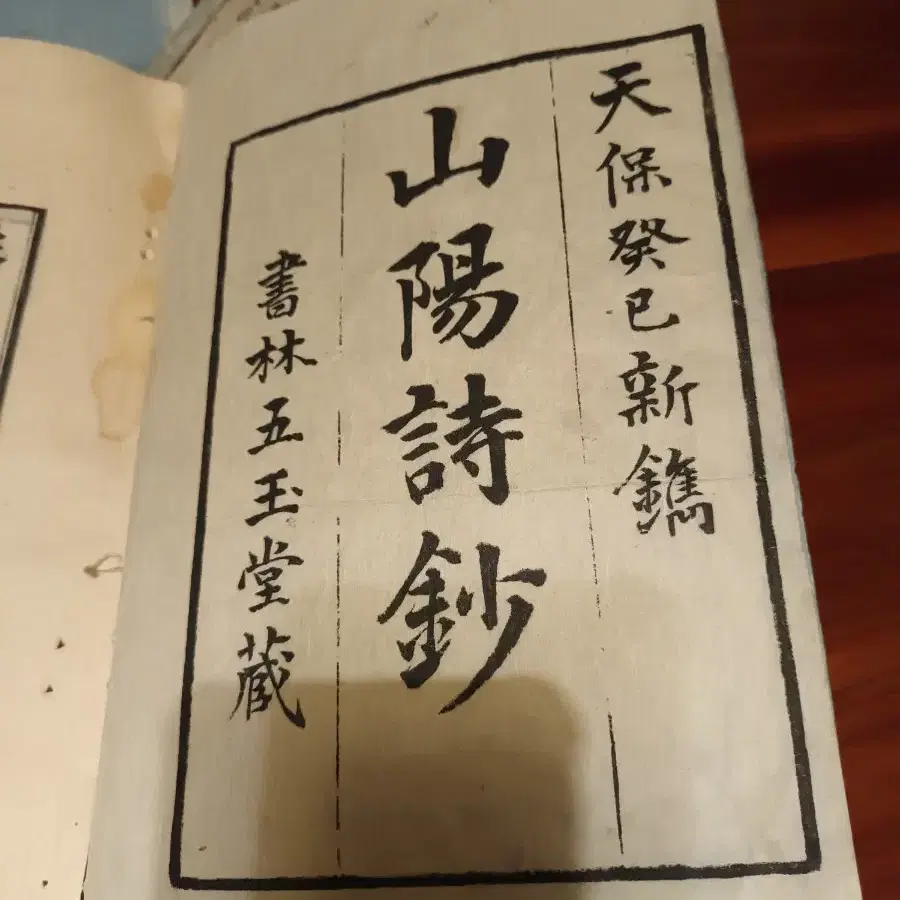 天保癸巳新鐫
山陽詩鈔
書林五玉堂蔵